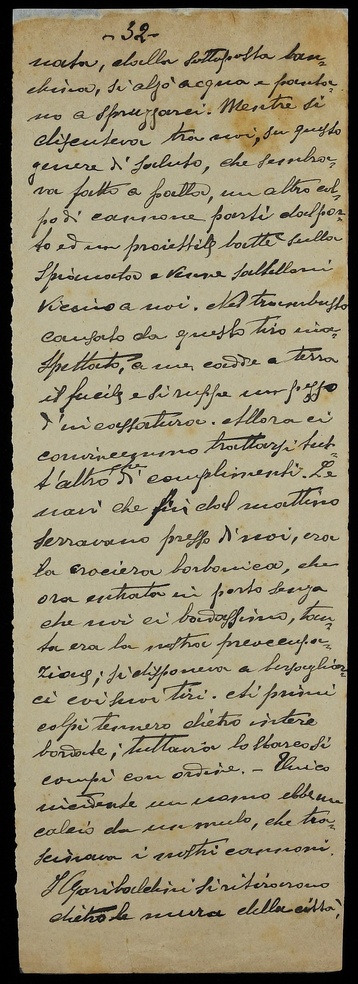 - 32 -
nata, dalla sottoposta ban-
china, si alzò acqua e panta-
no a spruzzarci. Mentre si
discuteva tra noi, su questo
genere di saluto, che sembra-
va fatto a palla, un altro col-
po di cannone partì dal por-
to ed un proiettile batté sulla
spianata e venne saltelloni
vicino a noi. Nel trambusto
causato da questo tiro ina-
spettato, a me cadde a terra
il fucile e si ruppe un pezzo
d'incassatura. Allora ci
convincemmo trattarsi tut-
t'altro che di complimenti. Le
navi che fin dal mattino
serravano presso di noi, era
la crociera borbonica, che
ora entrata in porto senza
che noi ci badassimo, tan-
ta era la nostra preoccupa-
zione; si disponeva a bersagliar-
ci coi suoi tiri. Ai primi
colpi tennero dietro intere
bordate; tuttavia lo sbarco si
compì con ordine. - Unico
incidente un uomo ebbe un
calcio da un mulo, che tra-
scinava i nostri cannoni.
I Garibaldini si ritirarono
dietro le mura della città,